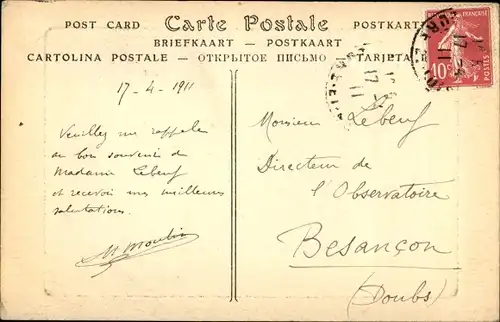 POST CARD Carte Postale POSTKARTE
BRIEFKAART — POSTKAART
CARTOLINA POSTALE — ОТКРЫТОЕ ПИСЬМО — TARJETA
FRANÇAISE
10c
POSTES
17-4-1911
Veuillez me rappeler
au bon souvenir de
Madame Lebeuf
et recevoir mes meilleures
salutations.
M Moulin
Monsieur Lebeuf
Directeur de
l'Observatoire
Besançon
(Doubs)